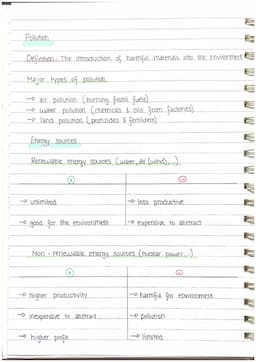 Pollution
Definition: The introduction of harmful materials into the environment
Major types of pollution
→ air pollution (burning fossil fuels)
→ water pollution (chemicals & oils from factories)
→ land pollution (pesticides & fertilizers)
Energy sources
Renewable energy sources (water, air (wind), ...)
+ −
→ unlimited → less productive
→ good for the environment → expensive to abstract
Non-renewable energy sources (nuclear power, ...)
+ −
→ higher productivity → harmful for environment
→ inexpensive to abstract → pollution
→ higher profit → limited